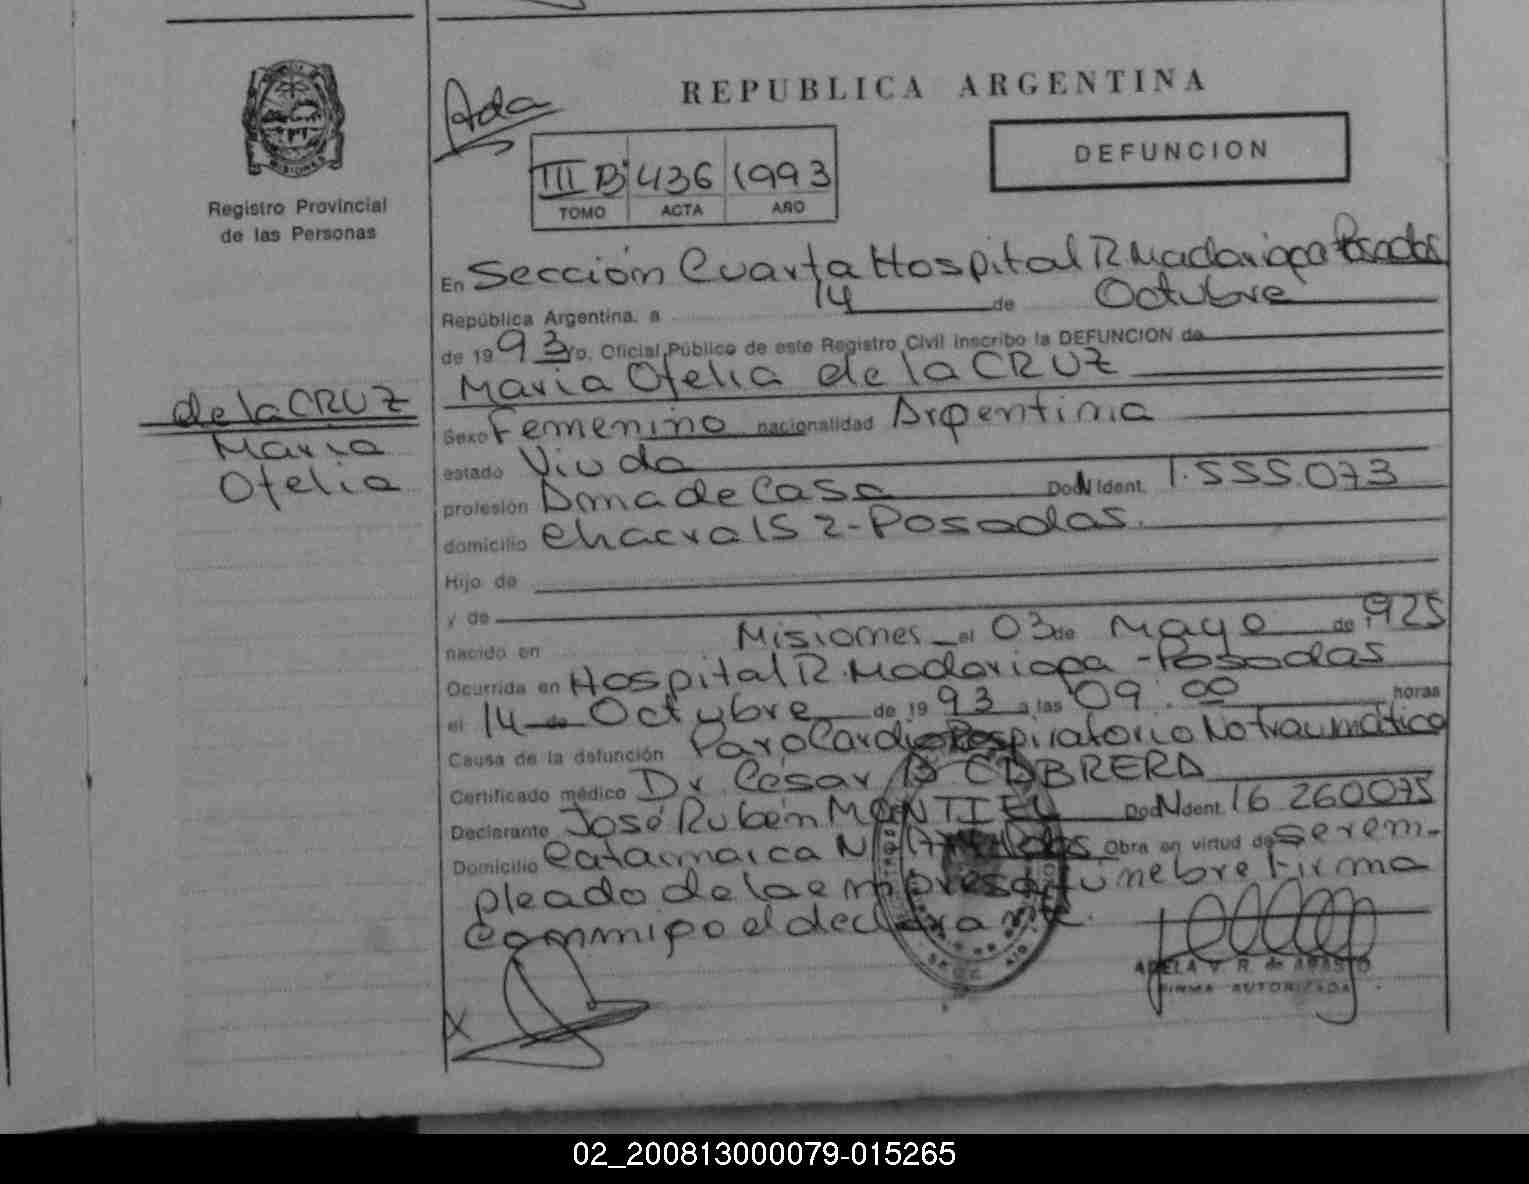 REPUBLICA ARGENTINA
Ada
DEFUNCION
III B 436 1993
TOMO ACTA AÑO
MISIONES
Registro Provincial
de las Personas
de la CRUZ
Maria
Ofelia
En Sección Cuarta Hospital R. Madariaga Posadas
República Argentina, a 14 de Octubre
de 1993 Yo, Oficial Público de este Registro Civil inscribo la DEFUNCION de
Maria Ofelia de la CRUZ
Sexo Femenino nacionalidad Argentina
estado Viuda
profesión Ama de Casa Doc N Ident. 1.555.073
domicilio Chacra 152 - Posadas.
Hijo de
y de
nacido en Misiones el 03 de Mayo de 1925
Ocurrida en Hospital R. Madariaga - Posadas
el 14 de Octubre de 1993 a las 09:00 horas
Causa de la defunción Paro Cardio Respiratorio No traumático
Certificado médico Dr. Cesar B CABRERA
Declarante José Rubén MONTIEL Doc N Ident. 16 260075
Domicilio Catamarca N Obra en virtud de ser em-
pleado de la empresa fúnebre Firma
conmigo el declarante.
X
ADELA V. R. de
FIRMA AUTORIZADA
02_200813000079-015265